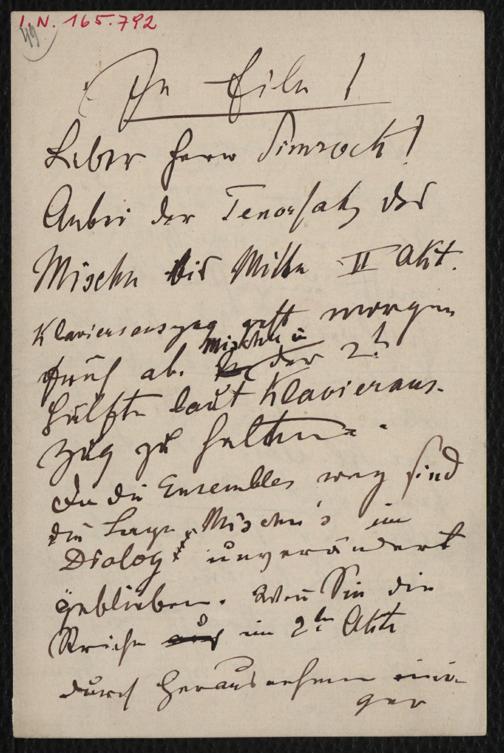 I.N. 165.792
49
In Eile!
Lieber Herr Simrock!
Anbei der Tenorsatz des
Mischa bis Mitte II Akt.
Klavierauszug geht morgen
früh ab. Mischa in der 2t
Hälfte laut Klavieraus-
zug zu halten.
In die Ensembles weg sind
die Lage Mischa's im
Dialog unverändert
geblieben. Wenn Sie die
Striche im 2ten Akte
durch Herausnehmen eini-
ger